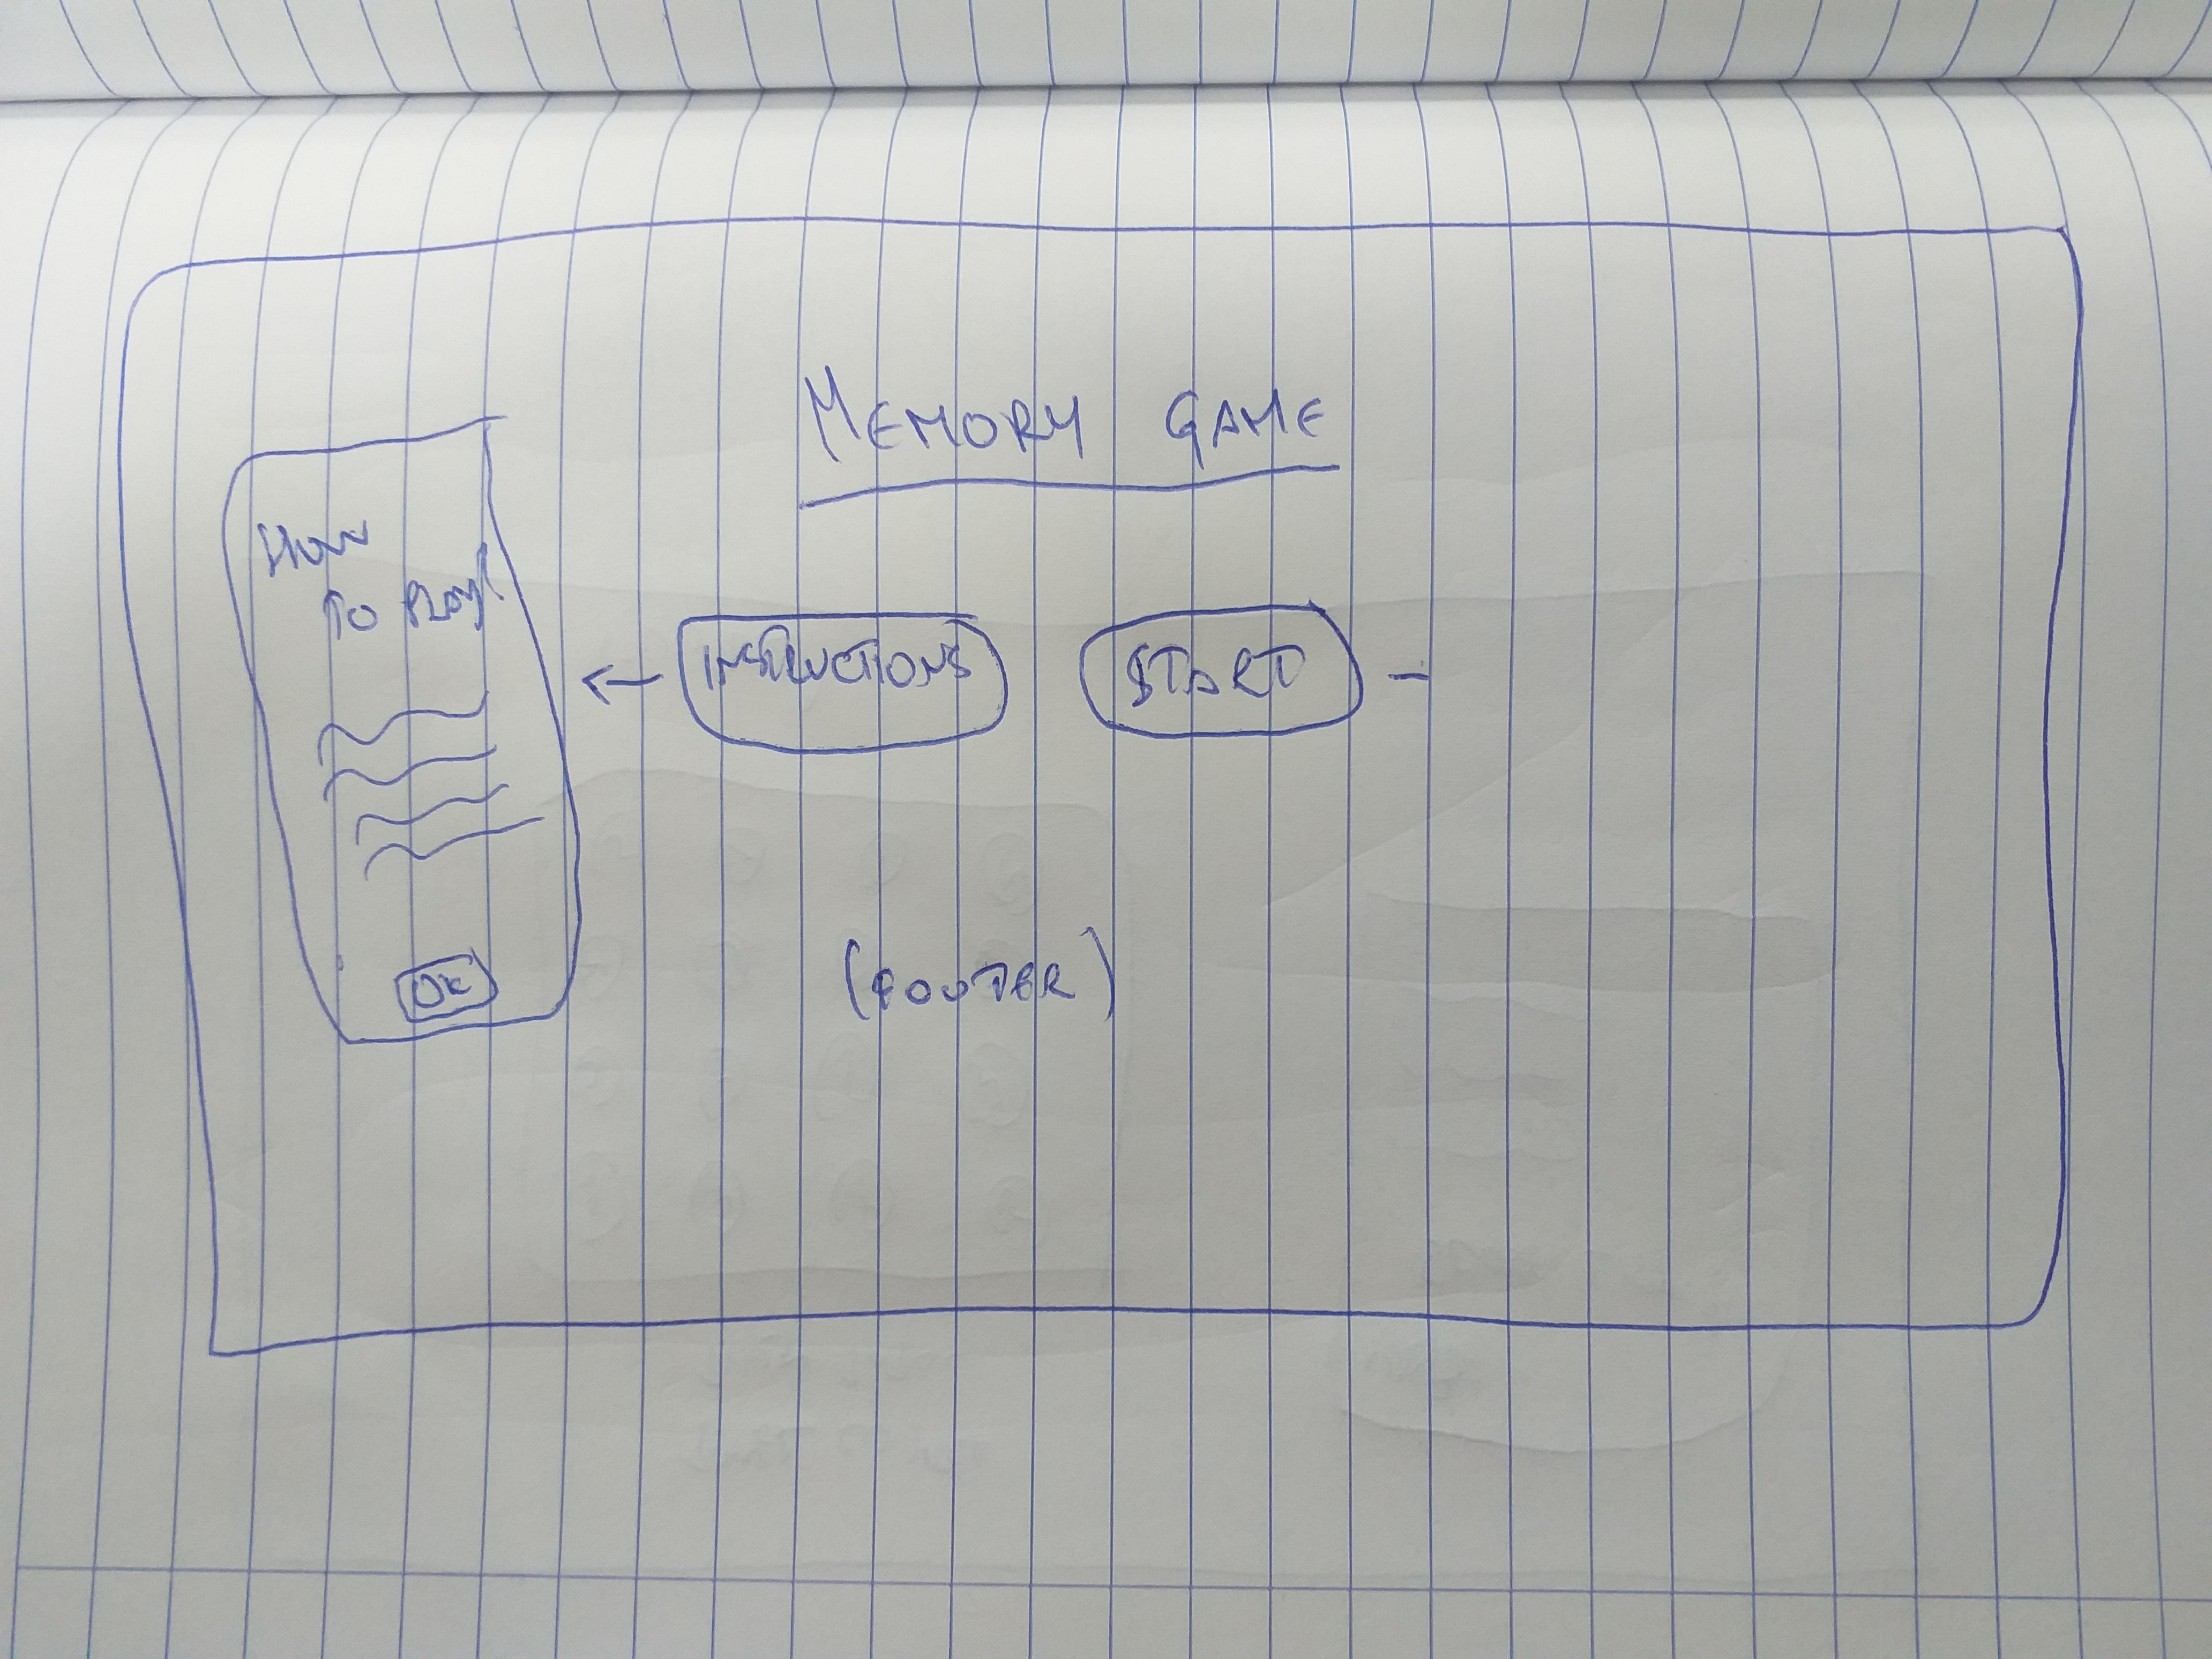 MEMORY GAME
HOW
TO PLAY!
INSTRUCTIONS
START
OK
(FOOTER)